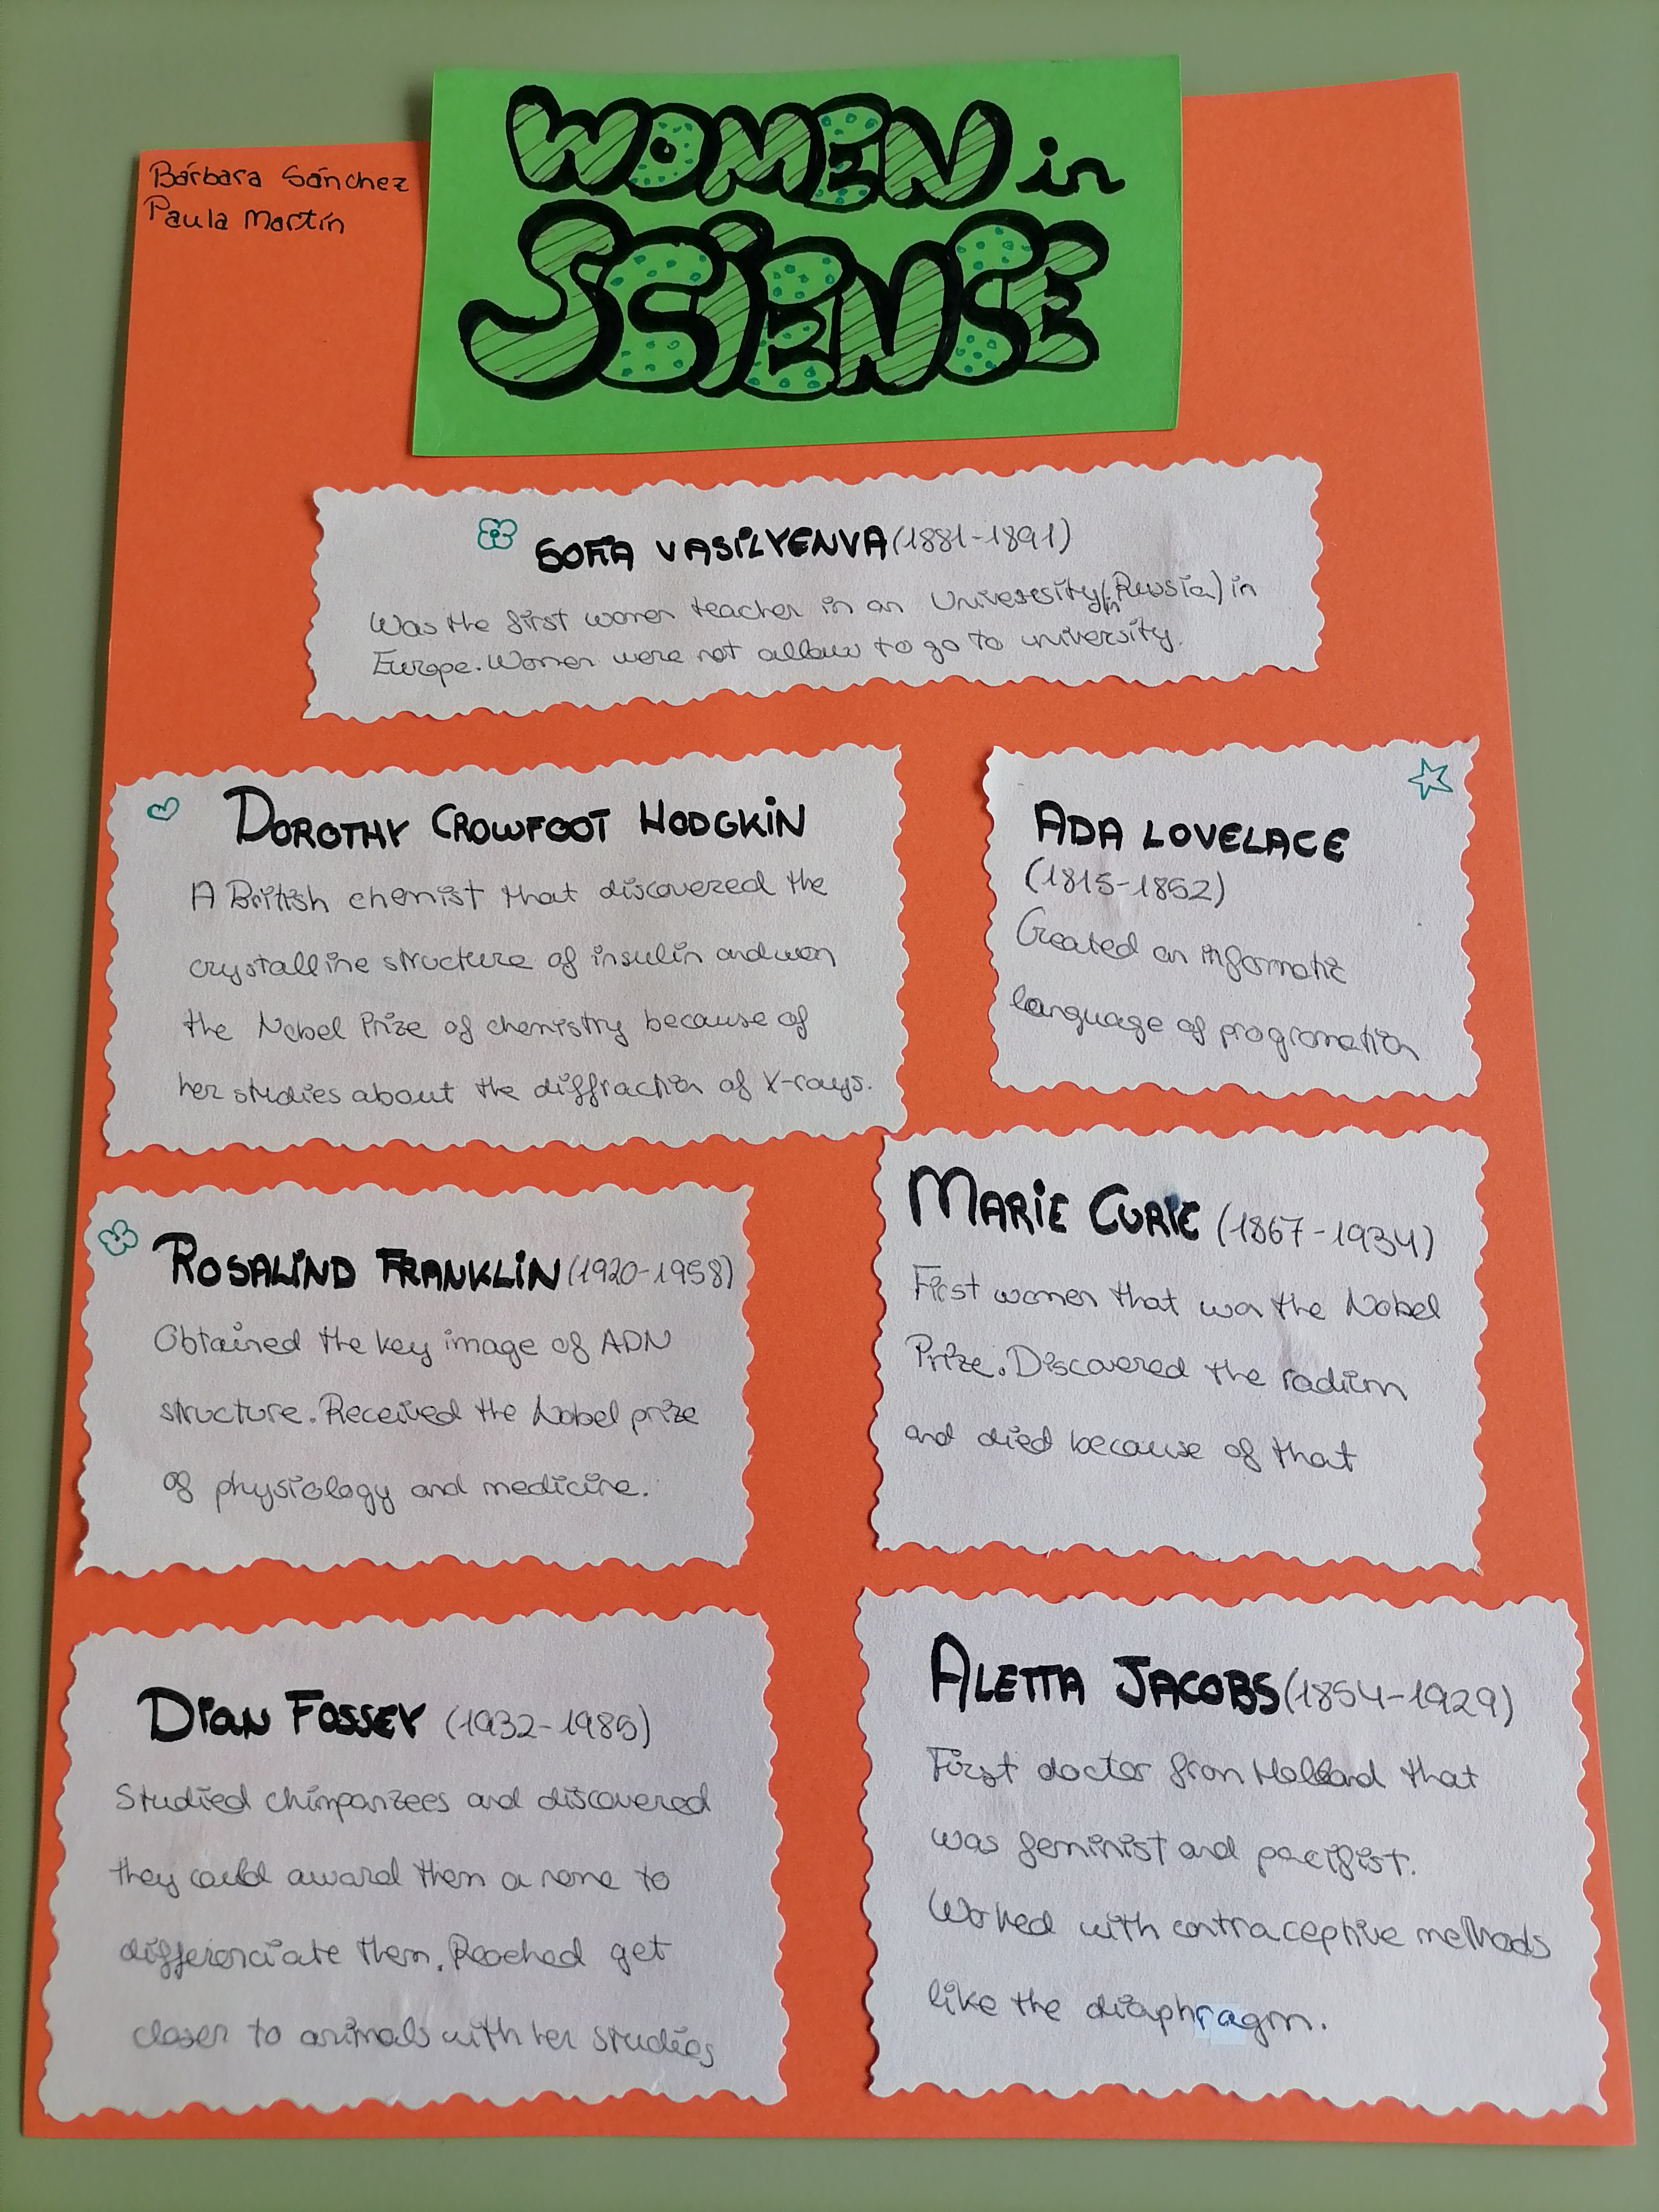 Bárbara Sánchez
Paula Martín
WOMEN in
SCIENCE
SOFIA VASILYENVA (1881-1891)
Was the first women teacher in an University (in Russia) in
Europe. Women were not allow to go to university.
DOROTHY CROWFOOT HODGKIN
A British chemist that discovered the
crystalline structure of insulin and won
the Nobel Prize of chemistry because of
her studies about the diffraction of X-rays.
ADA LOVELACE
(1815-1852)
Created an informatic
language of programation
ROSALIND FRANKLIN (1920-1958)
Obtained the key image of ADN
structure. Received the Nobel prize
of physiology and medicine.
MARIE CURIE (1867-1934)
First women that won the Nobel
Prize. Discovered the radium
and died because of that
DIAN FOSSEY (1932-1985)
Studied chimpanzees and discovered
they could award them a name to
differenciate them. Reached get
closer to animals with her studies
ALETTA JACOBS (1854-1929)
First doctor from Holland that
was feminist and pacifist.
Worked with contraceptive methods
like the diaphragm.